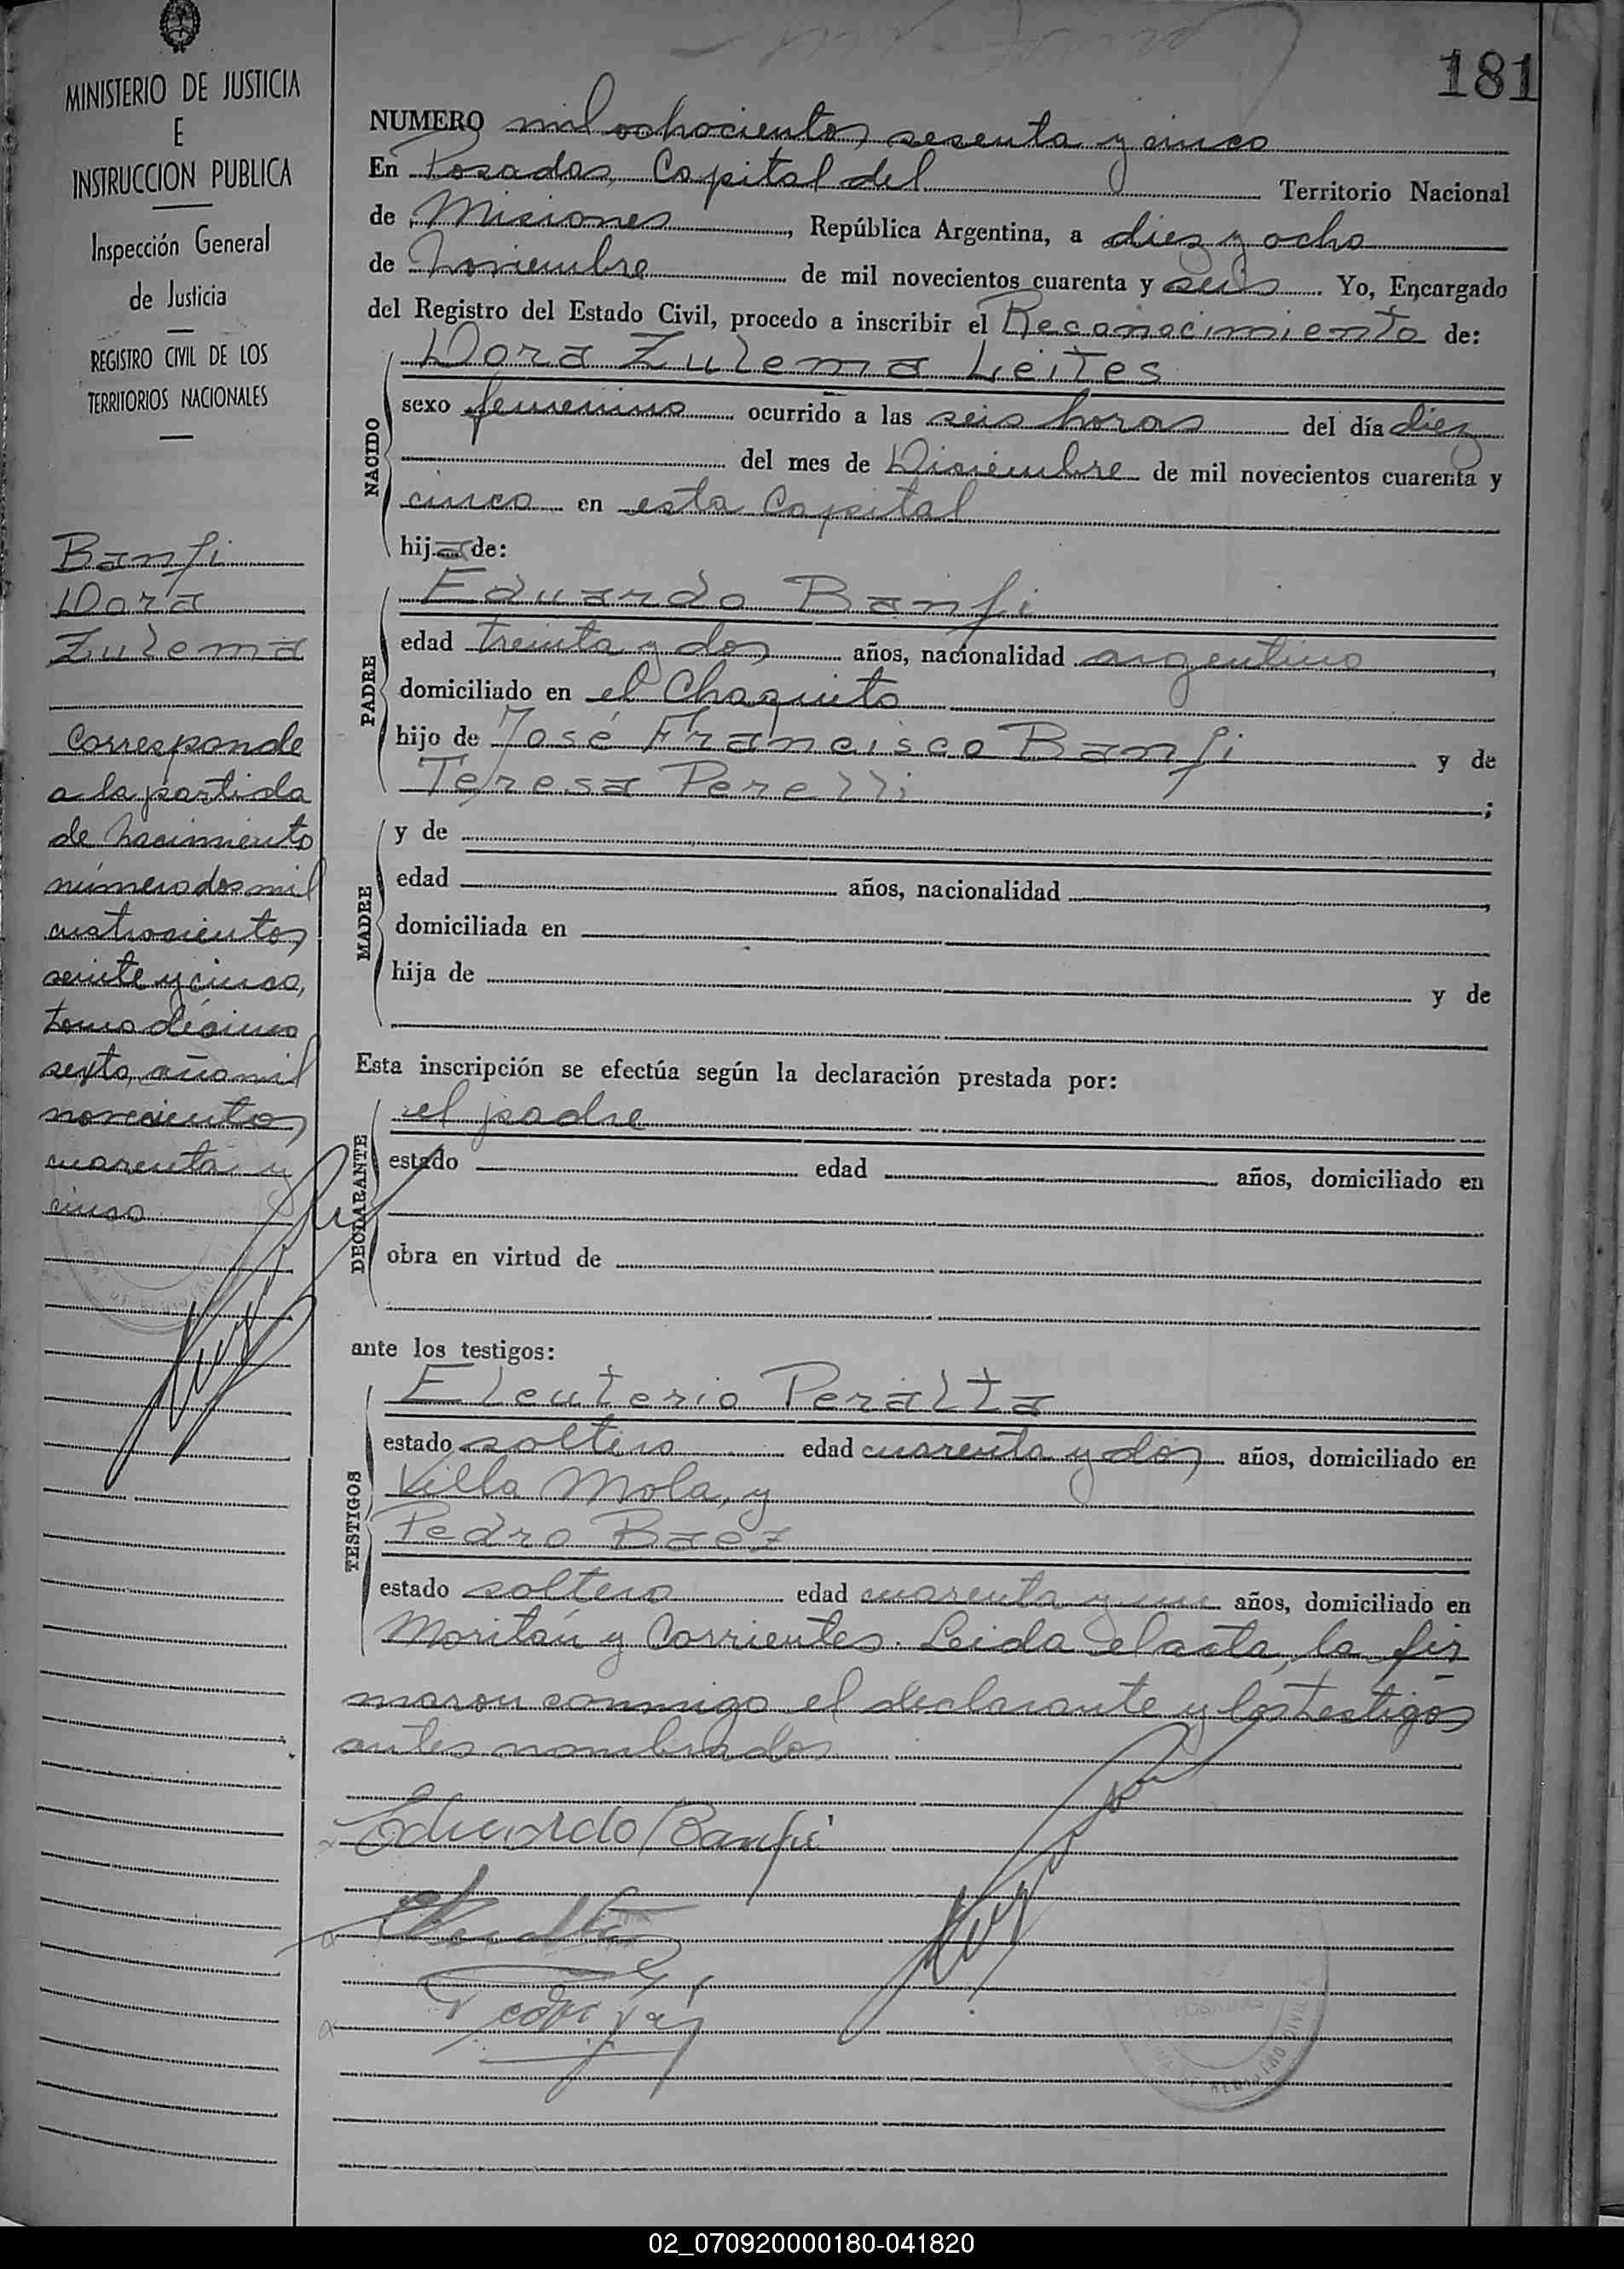 181
MINISTERIO DE JUSTICIA
E
INSTRUCCION PUBLICA
Inspección General
de Justicia
REGISTRO CIVIL DE LOS
TERRITORIOS NACIONALES
Banfi
Dora
Zulema
Corresponde
a la partida
de nacimiento
número dos mil
cuatrocientos
veinte y cinco,
tomo décimo
sexto, año mil
novecientos
cuarenta y
cinco
NUMERO mil ochocientos sesenta y cinco
En Posadas, Capital del Territorio Nacional
de Misiones, República Argentina, a diez y ocho
de Noviembre de mil novecientos cuarenta y seis Yo, Encargado
del Registro del Estado Civil, procedo a inscribir el Reconocimiento de:
Dora Zulema Leites
NACIDO
sexo femenino ocurrido a las seis horas del día diez
del mes de Diciembre de mil novecientos cuarenta y
cinco en esta Capital
hija de:
Eduardo Banfi
PADRE
edad treinta y dos años, nacionalidad argentino,
domiciliado en el Chaquito
hijo de José Francisco Banfi y de
Teresa Perelli;
MADRE
y de
edad años, nacionalidad,
domiciliada en
hija de y de
Esta inscripción se efectúa según la declaración prestada por:
el padre
DECLARANTE
estado edad años, domiciliado en
obra en virtud de
ante los testigos:
Eleuterio Peralta
TESTIGOS
estado soltero edad cuarenta y dos años, domiciliado en
Villa Mola, y
Pedro Baez
estado soltero edad cuarenta y un años, domiciliado en
Moritán y Corrientes. Leida el acta, la fir
maron conmigo el declarante y los testigos
antes nombrados
Eduardo Banfi
POSADAS
02_070920000180-041820